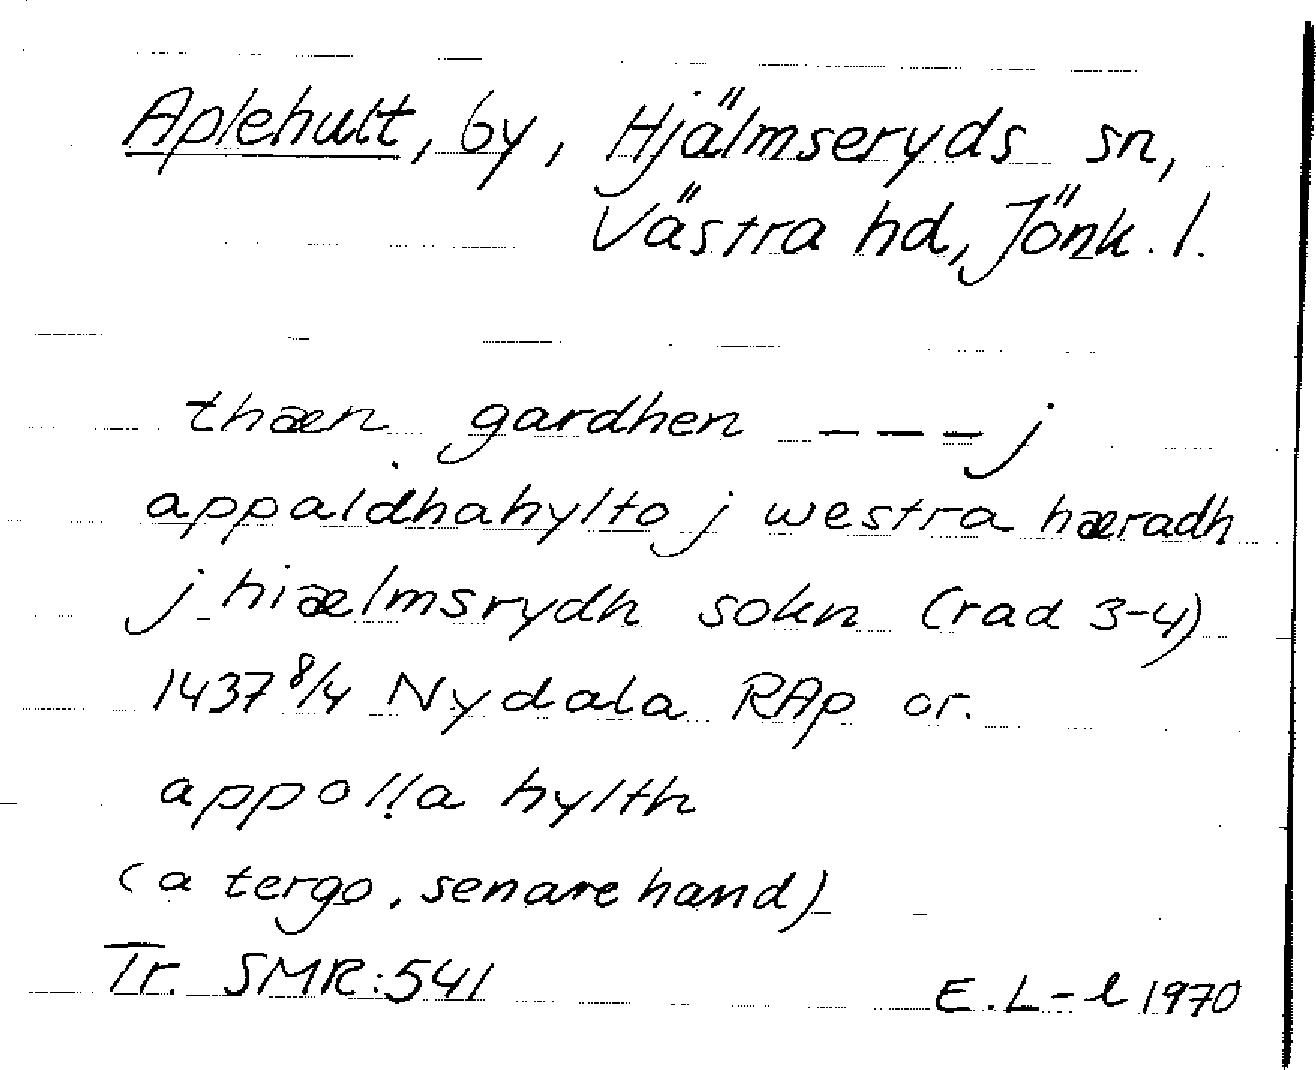 Aplehult, by, Hjälmseryds sn,
Västra hd, Jönk. l.
thæn gardhen --- j
appaldhahylto j westra hæradh
j hiælmsrydh sokn (rad 3-4)
1437 8/4 Nydala RAp or.
appolla hylth
(a tergo, senare hand)
Tr. SMR:541 E.L-l 1970